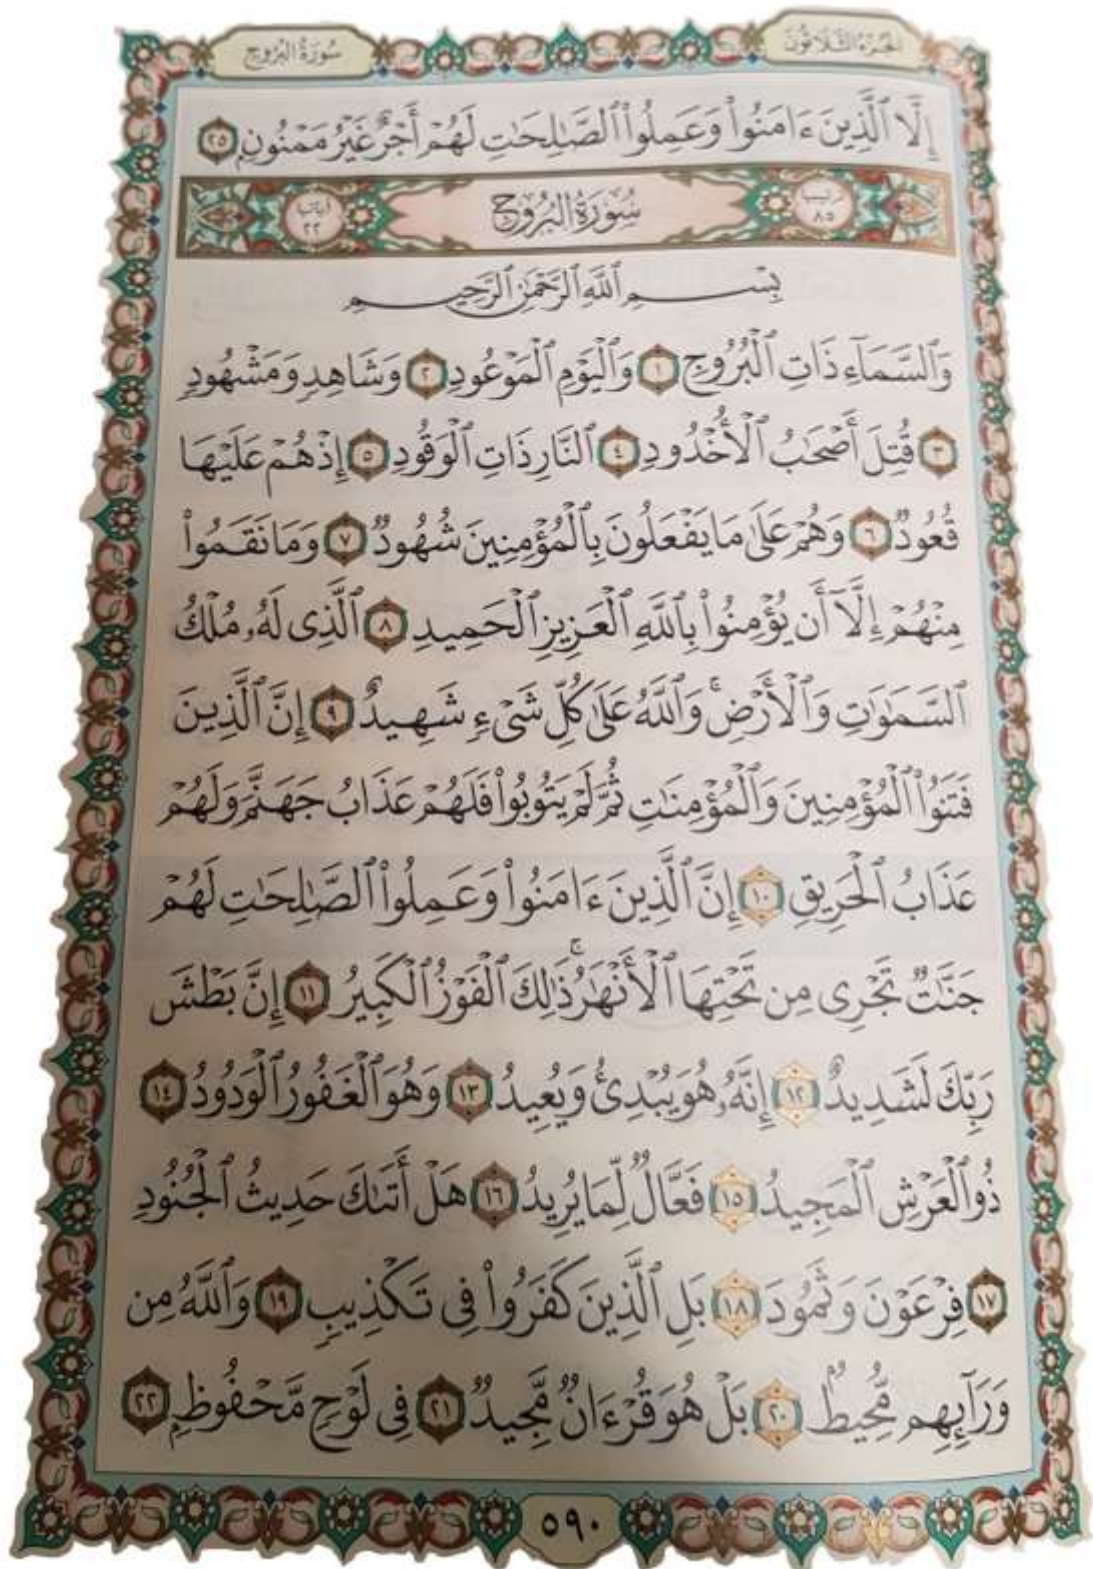 الجزء الثلاثون
سورة البروج
إِلَّا ٱلَّذِينَ ءَامَنُوا۟ وَعَمِلُوا۟ ٱلصَّـٰلِحَـٰتِ لَهُمْ أَجْرٌ غَيْرُ مَمْنُونٍۭ ٢٥
ترتيبها ٨٥
سُورَةُ البُرُوجِ
آياتها ٢٢
بِسْمِ ٱللَّهِ ٱلرَّحْمَـٰنِ ٱلرَّحِيمِ
وَٱلسَّمَآءِ ذَاتِ ٱلْبُرُوجِ ١ وَٱلْيَوْمِ ٱلْمَوْعُودِ ٢ وَشَاهِدٍ وَمَشْهُودٍ
٣ قُتِلَ أَصْحَـٰبُ ٱلْأُخْدُودِ ٤ ٱلنَّارِ ذَاتِ ٱلْوَقُودِ ٥ إِذْ هُمْ عَلَيْهَا
قُعُودٌ ٦ وَهُمْ عَلَىٰ مَا يَفْعَلُونَ بِٱلْمُؤْمِنِينَ شُهُودٌ ٧ وَمَا نَقَمُوا۟
مِنْهُمْ إِلَّآ أَن يُؤْمِنُوا۟ بِٱللَّهِ ٱلْعَزِيزِ ٱلْحَمِيدِ ٨ ٱلَّذِى لَهُۥ مُلْكُ
ٱلسَّمَـٰوَٰتِ وَٱلْأَرْضِ ۚ وَٱللَّهُ عَلَىٰ كُلِّ شَىْءٍ شَهِيدٌ ٩ إِنَّ ٱلَّذِينَ
فَتَنُوا۟ ٱلْمُؤْمِنِينَ وَٱلْمُؤْمِنَـٰتِ ثُمَّ لَمْ يَتُوبُوا۟ فَلَهُمْ عَذَابُ جَهَنَّمَ وَلَهُمْ
عَذَابُ ٱلْحَرِيقِ ١٠ إِنَّ ٱلَّذِينَ ءَامَنُوا۟ وَعَمِلُوا۟ ٱلصَّـٰلِحَـٰتِ لَهُمْ
جَنَّـٰتٌ تَجْرِى مِن تَحْتِهَا ٱلْأَنْهَـٰرُ ۚ ذَٰلِكَ ٱلْفَوْزُ ٱلْكَبِيرُ ١١ إِنَّ بَطْشَ
رَبِّكَ لَشَدِيدٌ ١٢ إِنَّهُۥ هُوَ يُبْدِئُ وَيُعِيدُ ١٣ وَهُوَ ٱلْغَفُورُ ٱلْوَدُودُ ١٤
ذُو ٱلْعَرْشِ ٱلْمَجِيدُ ١٥ فَعَّالٌ لِّمَا يُرِيدُ ١٦ هَلْ أَتَىٰكَ حَدِيثُ ٱلْجُنُودِ
١٧ فِرْعَوْنَ وَثَمُودَ ١٨ بَلِ ٱلَّذِينَ كَفَرُوا۟ فِى تَكْذِيبٍ ١٩ وَٱللَّهُ مِن
وَرَآئِهِم مُّحِيطٌۢ ٢٠ بَلْ هُوَ قُرْءَانٌ مَّجِيدٌ ٢١ فِى لَوْحٍ مَّحْفُوظٍۭ ٢٢
٥٩٠